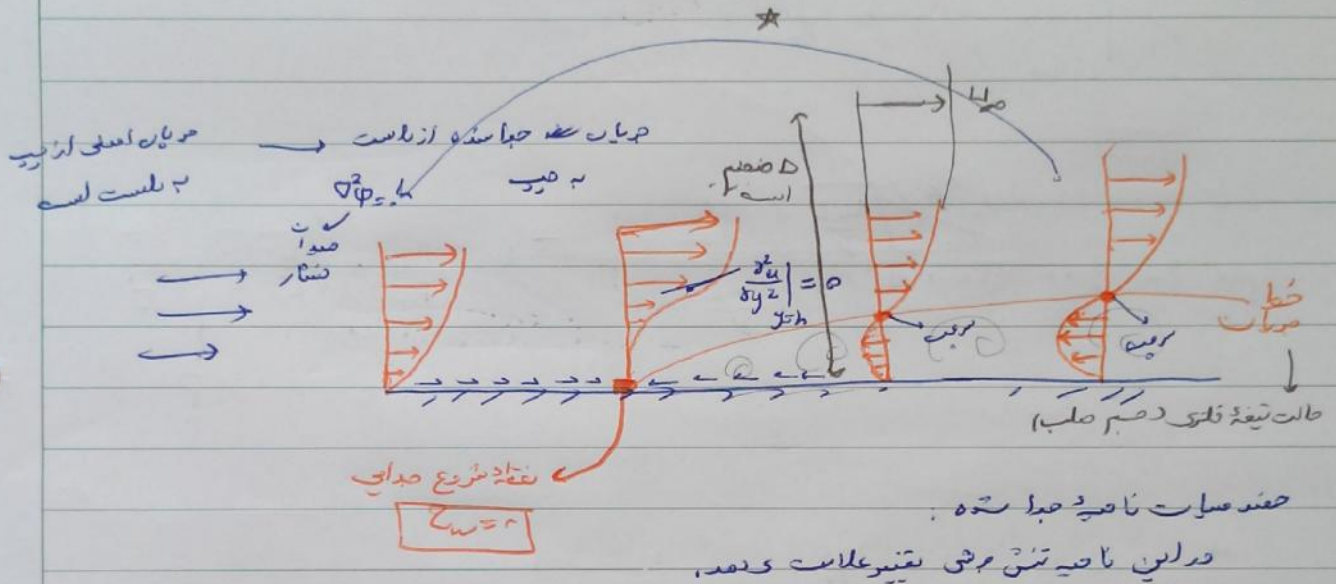 جریان اصلی از چپ
به راست است
جریان جدا شده از راست
به چپ
∇²φ = 0
معادلات
فشار
ضخیم
است
∂²u/∂y² |y=h = 0
سرعت
سرعت
خط
جریان
حالت تیغهٔ فلزی (جسم صلب)
نقطهٔ شروع جدایی
τw = 0
خصوصیات ناحیهٔ جدا شده :
در این ناحیه تنش برشی تغییر علامت می‌دهد.